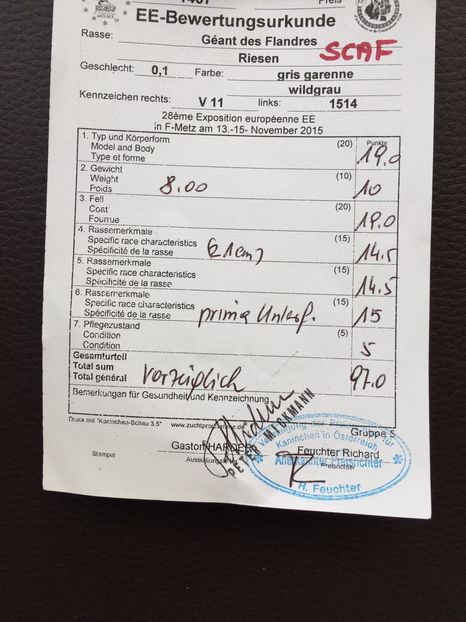 1407 Preis
EE-Bewertungsurkunde
Rasse: Géant des Flandres
Riesen SCAF
Geschlecht: 0,1 Farbe: gris garenne
wildgrau
Kennzeichen rechts: V 11 links: 1514
28ème Exposition européenne EE
in F-Metz am 13.-15- November 2015
1. Typ und Körperform (20) Punkte
Model and Body
Type et forme 19.0
2. Gewicht (10)
Weight
Poids 8.00 10
3. Fell (20)
Coat
Fourrue 19.0
4. Rassemerkmale
Specific race characteristics (15)
Spécificité de la rasse (21cm) 14.5
5. Rassemerkmale
Specific race characteristics (15)
Spécificité de la rasse 14.5
6. Rassemerkmale
Specific race characteristics (15)
Spécificité de la rasse prima Unterf. 15
7. Pflegezustand (5)
Condition
Condition 5
Gesamturteil
Total sum
Total général vorzüglich 97.0
Bemerkungen für Gesundheit und Kennzeichnung
Druck mit "Kaninchen-Schau 3.5" Gruppe 5
Gaston Feuchter Richard
Stempel Preisrichter
PETER MERKMANN
Kaninchen in Österreich
Anerkannter Preisrichter
R. Feuchter